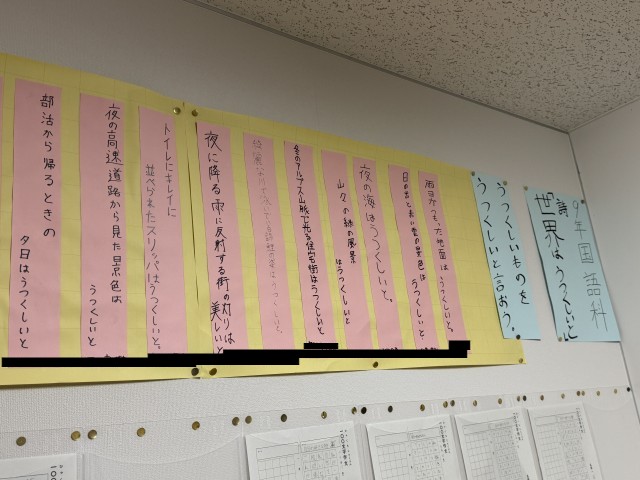 9年国語科
詩「世界はうつくしいと」
うつくしいものを
うつくしいと言おう。
地面はうつくしいと。
日の出と赤い雲の景色は
うつくしいと。
夜の海はうつくしいと。
山々の緑の風景
はうつくしいと
冬のアルプス山脈で光る住宅街はうつくしいと
夜に降る雨に反射する街の灯りは
美しいと
トイレにキレイに
並べられたスリッパはうつくしいと。
夜の高速道路から見た景色は
うつくしいと
部活から帰るときの
夕日はうつくしいと